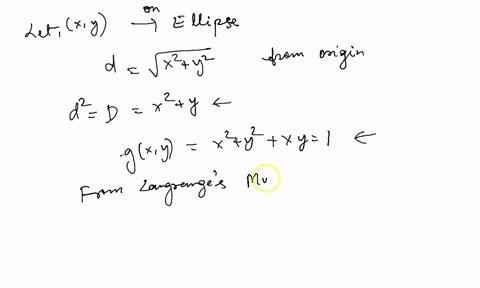 Let, (x, y) ⟶ on Ellipse
d = √x²+y² from origin
d² = D = x²+y ←
g(x, y) = x²+y²+xy=1 ←
From Langrange's Mu